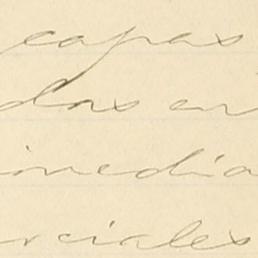 capas
dos en
inmedia
rciales